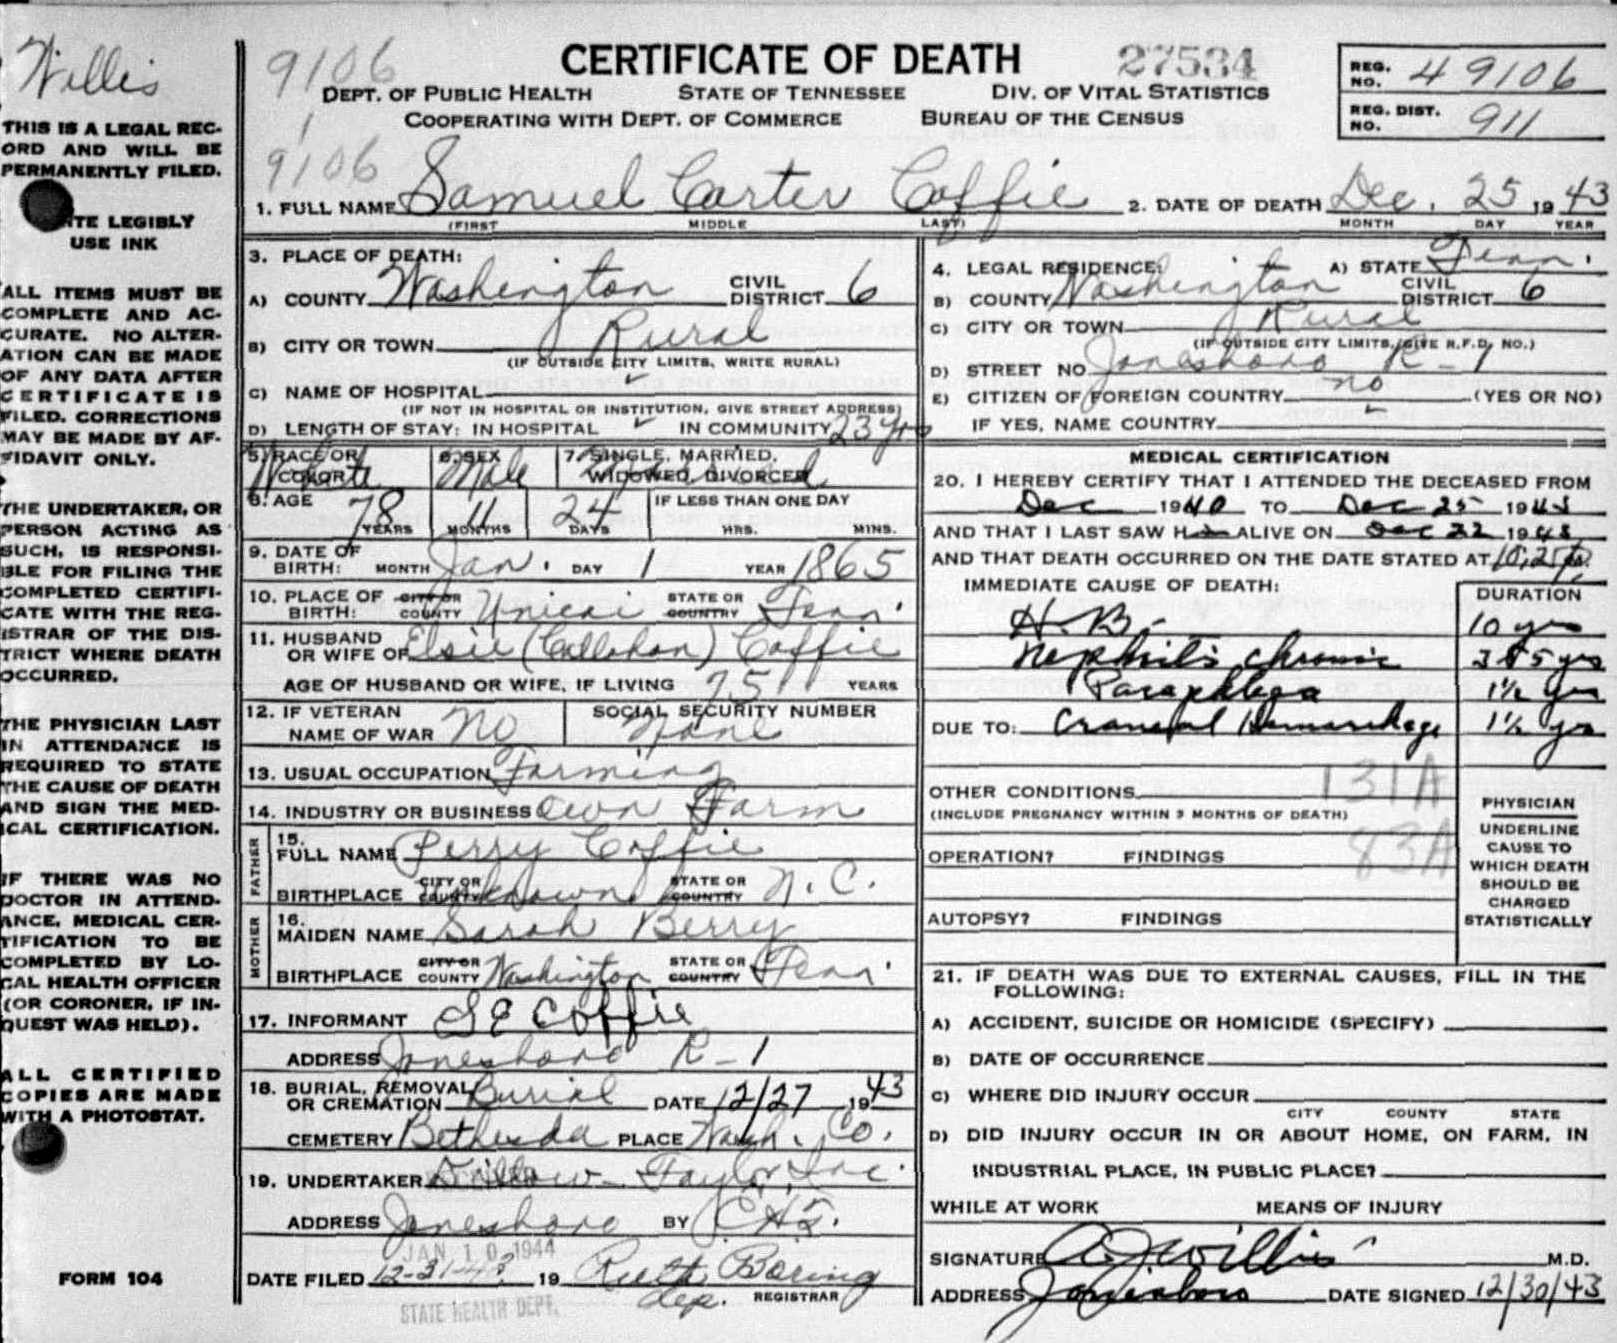 Willis
THIS IS A LEGAL REC-
ORD AND WILL BE
PERMANENTLY FILED.
TE LEGIBLY
USE INK
ALL ITEMS MUST BE
COMPLETE AND AC-
CURATE. NO ALTER-
ATION CAN BE MADE
OF ANY DATA AFTER
CERTIFICATE IS
FILED. CORRECTIONS
MAY BE MADE BY AF-
FIDAVIT ONLY.
THE UNDERTAKER, OR
PERSON ACTING AS
SUCH, IS RESPONSI-
BLE FOR FILING THE
COMPLETED CERTIFI-
CATE WITH THE REG-
ISTRAR OF THE DIS-
TRICT WHERE DEATH
OCCURRED.
THE PHYSICIAN LAST
IN ATTENDANCE IS
REQUIRED TO STATE
THE CAUSE OF DEATH
AND SIGN THE MED-
ICAL CERTIFICATION.
IF THERE WAS NO
DOCTOR IN ATTEND-
ANCE, MEDICAL CER-
TIFICATION TO BE
COMPLETED BY LO-
CAL HEALTH OFFICER
(OR CORONER, IF IN-
QUEST WAS HELD).
ALL CERTIFIED
COPIES ARE MADE
WITH A PHOTOSTAT.
FORM 104
9106 CERTIFICATE OF DEATH 27534
DEPT. OF PUBLIC HEALTH STATE OF TENNESSEE DIV. OF VITAL STATISTICS
COOPERATING WITH DEPT. OF COMMERCE BUREAU OF THE CENSUS
REG. NO. 49106
REG. DIST. NO. 911
1
9106
1. FULL NAME Samuel Carter Coffie 2. DATE OF DEATH Dec. 25 1943
(FIRST MIDDLE LAST) MONTH DAY YEAR
3. PLACE OF DEATH:
A) COUNTY Washington CIVIL DISTRICT 6
B) CITY OR TOWN Rural
(IF OUTSIDE CITY LIMITS, WRITE RURAL)
C) NAME OF HOSPITAL
(IF NOT IN HOSPITAL OR INSTITUTION, GIVE STREET ADDRESS)
D) LENGTH OF STAY: IN HOSPITAL IN COMMUNITY 23 yrs
4. LEGAL RESIDENCE: A) STATE Tenn.
B) COUNTY Washington CIVIL DISTRICT 6
C) CITY OR TOWN Rural
(IF OUTSIDE CITY LIMITS, GIVE R.F.D. NO.)
D) STREET NO Jonesboro R-1
E) CITIZEN OF FOREIGN COUNTRY no (YES OR NO)
IF YES, NAME COUNTRY
5. RACE OR COLOR White 6. SEX Male 7. SINGLE, MARRIED, WIDOWED, DIVORCED
8. AGE 78 YEARS 11 MONTHS 24 DAYS IF LESS THAN ONE DAY HRS. MINS.
9. DATE OF BIRTH: MONTH Jan. DAY 1 YEAR 1865
10. PLACE OF BIRTH: CITY OR COUNTY Unicoi STATE OR COUNTRY Tenn.
11. HUSBAND OR WIFE OF Elsie (Callahan) Coffie
AGE OF HUSBAND OR WIFE, IF LIVING 75 YEARS
12. IF VETERAN NAME OF WAR No SOCIAL SECURITY NUMBER None
13. USUAL OCCUPATION Farming
14. INDUSTRY OR BUSINESS Own Farm
FATHER
15. FULL NAME Perry Coffie
BIRTHPLACE CITY OR COUNTY Unknown STATE OR COUNTRY N.C.
MOTHER
16. MAIDEN NAME Sarah Berry
BIRTHPLACE CITY OR COUNTY Washington STATE OR COUNTRY Tenn.
17. INFORMANT S E Coffie
ADDRESS Jonesboro R-1
18. BURIAL, REMOVAL OR CREMATION Burial DATE 12/27 1943
CEMETERY Bethesda PLACE Wash. Co.
19. UNDERTAKER Dillow-Taylor, Inc.
ADDRESS Jonesboro BY C.H.T.
JAN 10 1944
DATE FILED 12-31-43 19 Ruth Boring
dep. REGISTRAR
STATE HEALTH DEPT.
MEDICAL CERTIFICATION
20. I HEREBY CERTIFY THAT I ATTENDED THE DECEASED FROM
Dec 1940 TO Dec 25 1943
AND THAT I LAST SAW H ALIVE ON Dec 22 1943
AND THAT DEATH OCCURRED ON THE DATE STATED AT 10:25 P.
IMMEDIATE CAUSE OF DEATH: DURATION
H.B. 10 yrs
Nephritis chronic 5 yrs
Paraplegia 1½ yrs
DUE TO: Cranial Hemorrhage 1½ yrs
OTHER CONDITIONS 131A
(INCLUDE PREGNANCY WITHIN 3 MONTHS OF DEATH)
83A
OPERATION? FINDINGS
AUTOPSY? FINDINGS
PHYSICIAN
UNDERLINE
CAUSE TO
WHICH DEATH
SHOULD BE
CHARGED
STATISTICALLY
21. IF DEATH WAS DUE TO EXTERNAL CAUSES, FILL IN THE
FOLLOWING:
A) ACCIDENT, SUICIDE OR HOMICIDE (SPECIFY)
B) DATE OF OCCURRENCE
C) WHERE DID INJURY OCCUR
CITY COUNTY STATE
D) DID INJURY OCCUR IN OR ABOUT HOME, ON FARM, IN
INDUSTRIAL PLACE, IN PUBLIC PLACE?
WHILE AT WORK MEANS OF INJURY
SIGNATURE A J Willis M.D.
ADDRESS Jonesboro DATE SIGNED 12/30/43